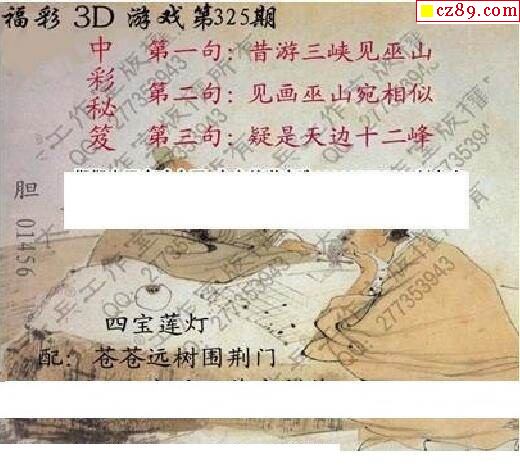 福彩 3D 游戏第325期
cz89.com
中彩秘笈
第一句：昔游三峡见巫山
第二句：见画巫山宛相似
第三句：疑是天边十二峰
胆 01456
四宝莲灯
配：苍苍远树围荆门
大兵工作室版权所有
QQ：277353943